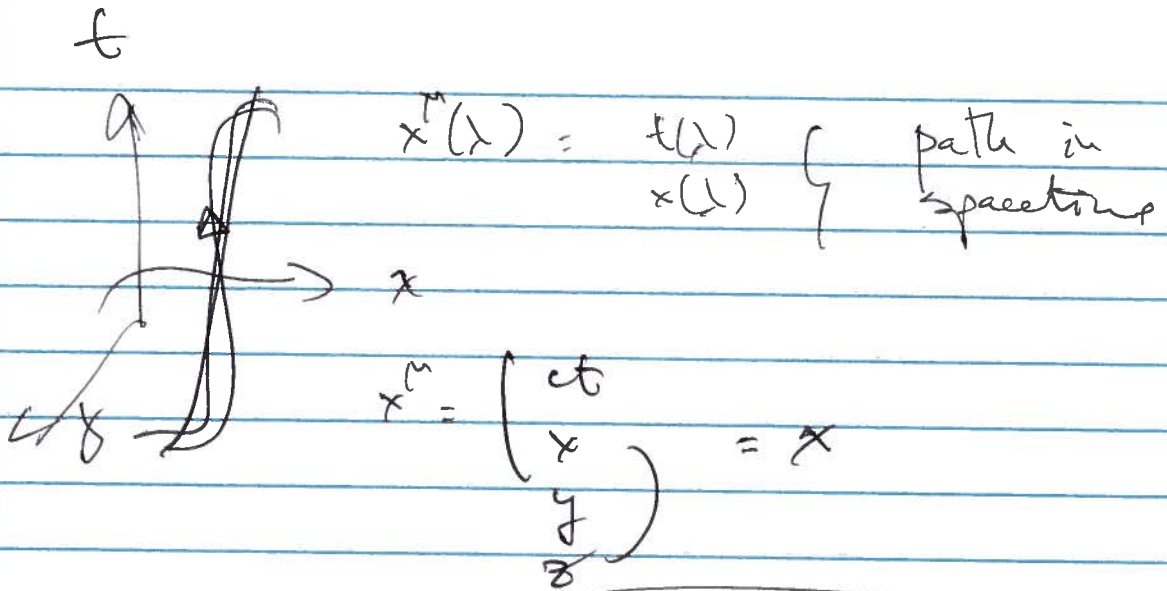 t
x^μ(λ) = t(λ) } path in
x(λ) spacetime
x
y
x^μ = ( ct
x = x
y
z )